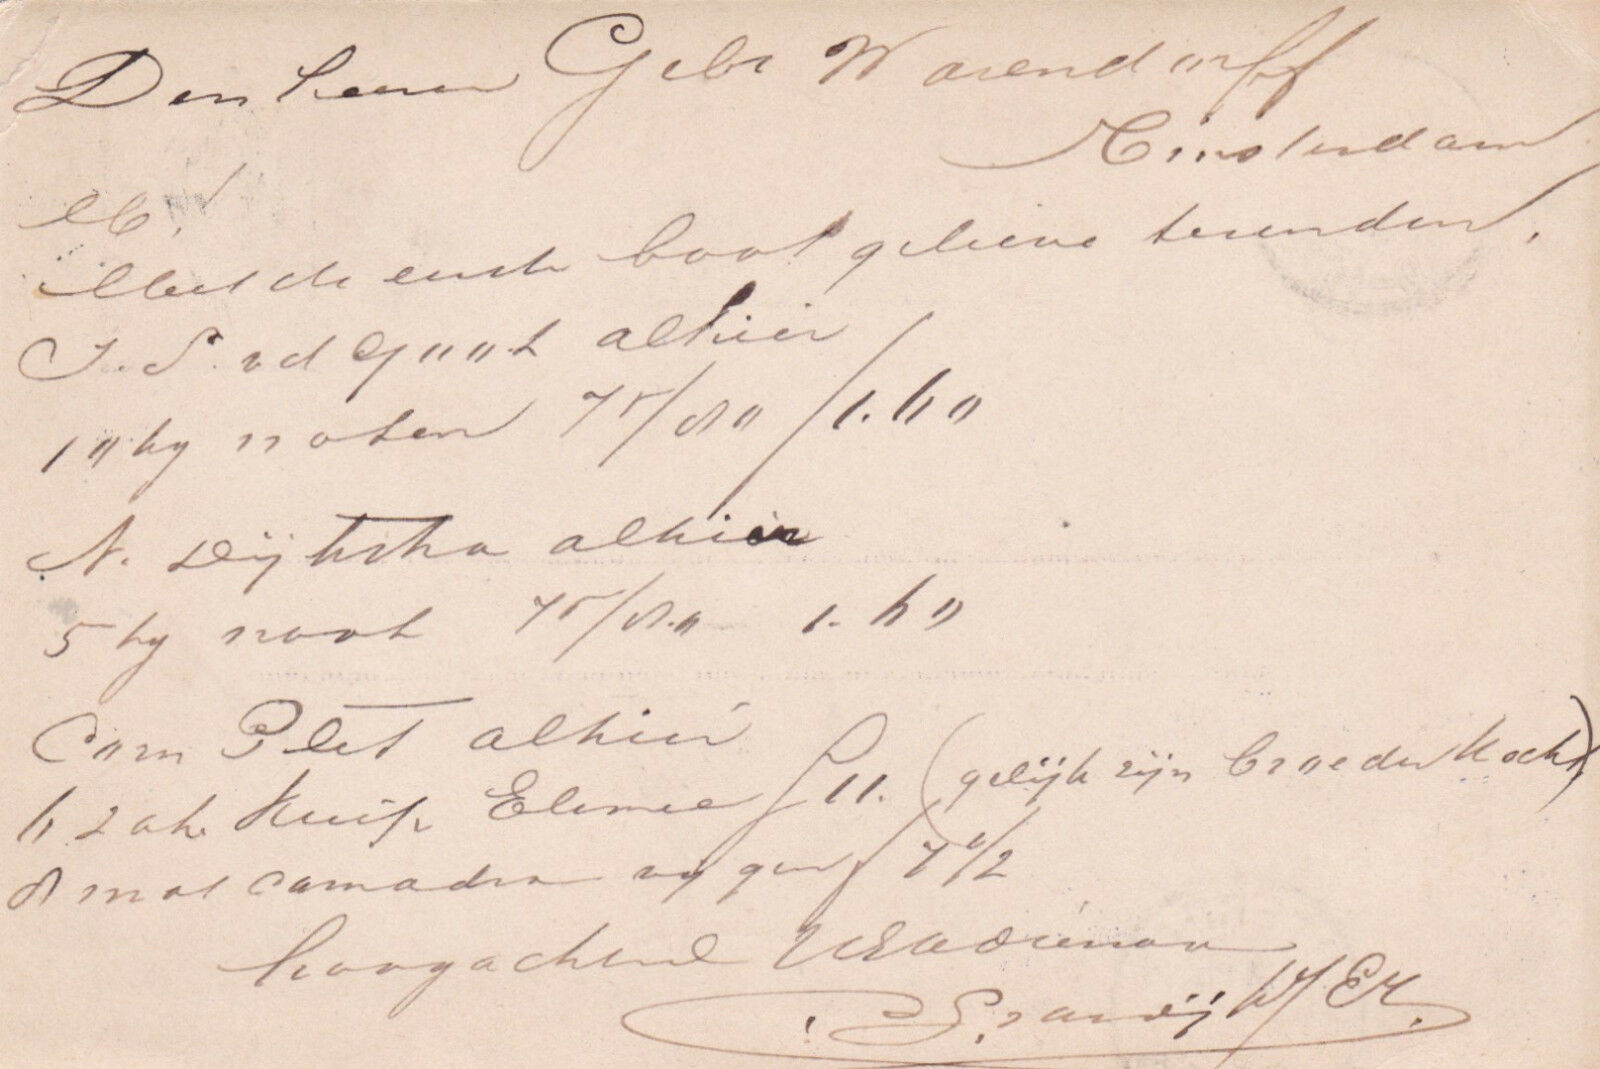 Den heeren Gebr Warendorff
Amsterdam
M!
Met de eerste boot gelieve te zenden,
J. S. vd Goot alhier
10 kg noten 75/80 / 1.60
N. Dijkstra alhier
5 kg noot 75/80 1.60
Corn Plet alhier
6 zak Elemee f 11. (gelijk zijn broeder Kocht)
8 mat vijgen f 7 1/2
hoogachtend UEd dienaar